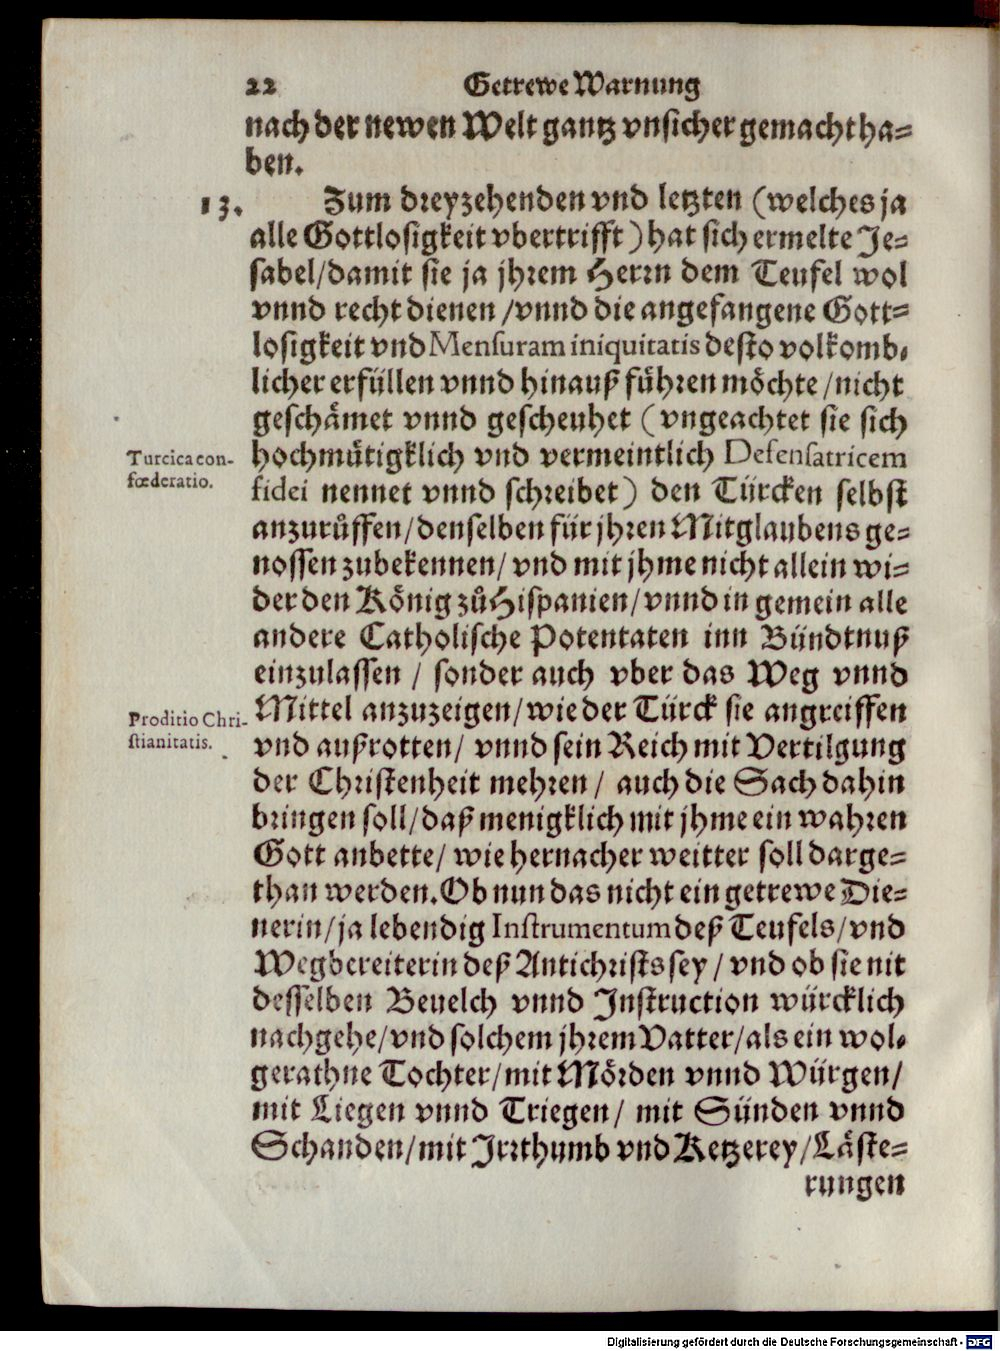 22 Getrewe Warnung
nach der newen Welt gantz vnsicher gemacht ha=
ben.
13. Zum dreyzehenden vnd letzten (welches ja
alle Gottlosigkeit vbertrifft) hat sich ermelte Je=
sabel/damit sie ja jhrem Herrn dem Teufel wol
vnnd recht dienen /vnnd die angefangene Gott=
losigkeit vnd Mensuram iniquitatis desto volkomb=
licher erfüllen vnnd hinauß führen möchte /nicht
geschämet vnnd gescheuhet (vngeachtet sie sich
hochmütigklich vnd vermeintlich Defensatricem
fidei nennet vnnd schreibet) den Türcken selbst
anzurůffen/denselben für jhren Mitglaubens ge=
nossen zubekennen/ vnd mit jhme nicht allein wi=
der den König zů Hispanien/vnnd in gemein alle
andere Catholische Potentaten inn Bündtnuß
einzulassen / sonder auch vber das Weg vnnd
Mittel anzuzeigen/wie der Türck sie angreiffen
vnd außrotten/ vnnd sein Reich mit Vertilgung
der Christenheit mehren / auch die Sach dahin
bringen soll/daß menigklich mit jhme ein wahren
Gott anbette/ wie hernacher weitter soll darge=
than werden. Ob nun das nicht ein getrewe Die=
nerin/ja lebendig Instrumentum deß Teufels/vnd
Wegbereiterin deß Antichrists sey / vnd ob sie nit
desselben Beuelch vnnd Instruction würcklich
nachgehe/vnd solchem jhrem Vatter/als ein wol=
gerathne Tochter/mit Mörden vnnd Würgen/
mit Liegen vnnd Triegen/ mit Sünden vnnd
Schanden/mit Irrthumb vnd Ketzerey/Läste=
rungen
Turcica con-
fœderatio.
Proditio Chri-
stianitatis.
Digitalisierung gefördert durch die Deutsche Forschungsgemeinschaft - DFG